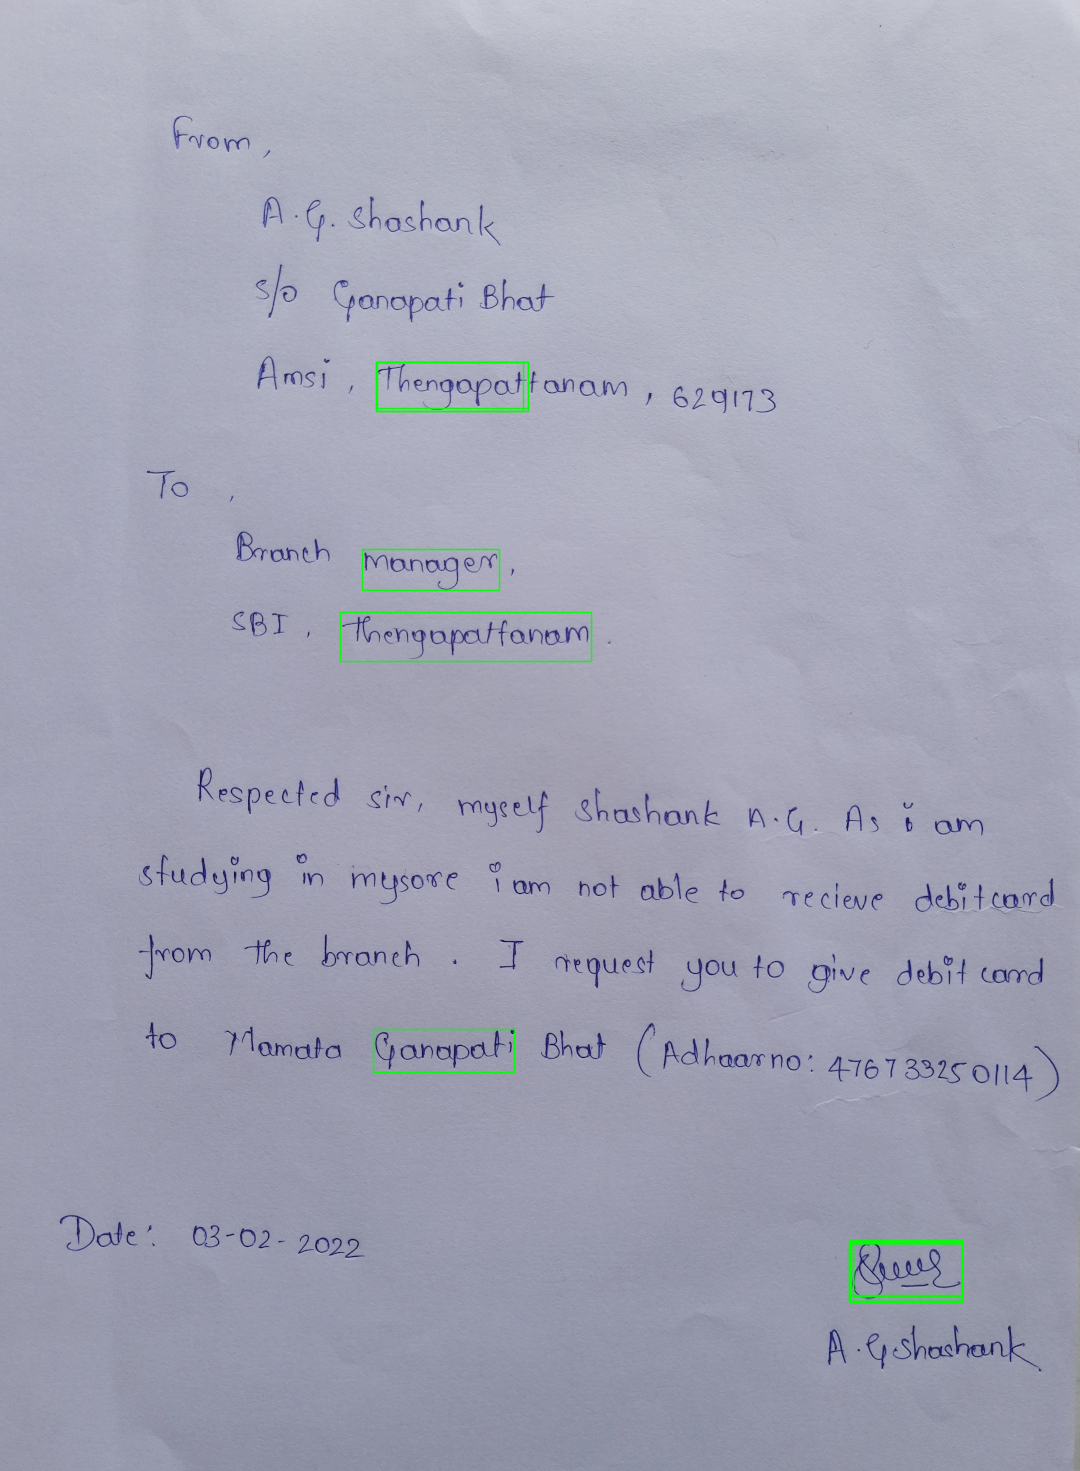 From,
A.G. Shashank
S/o Ganapati Bhat
Amsi, Thengapattanam, 629173
To,
Branch manager,
SBI, Thengapattanam.
Respected sir, myself Shashank A.G. As i am
studying in mysore i am not able to recieve debitcard
from the branch. I request you to give debit card
to Mamata Ganapati Bhat (Adhaarno: 476733250114)
Date: 03-02-2022
A.G Shashank